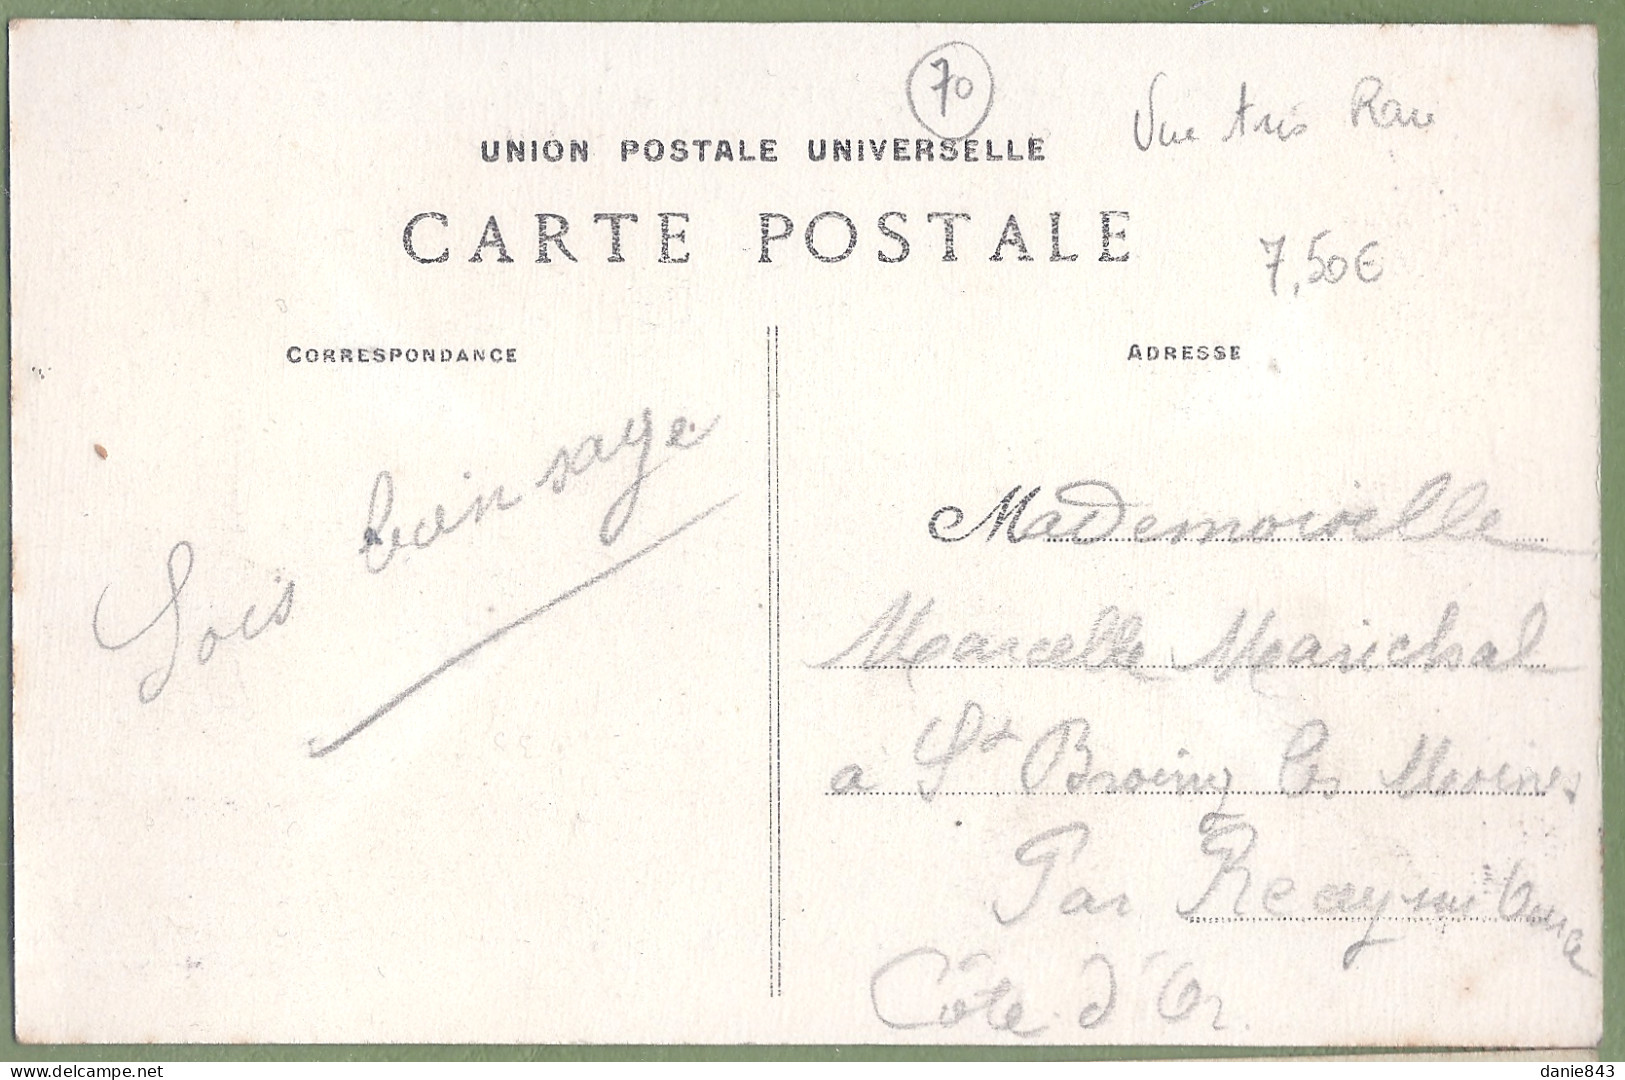 70
Vue très Rare
UNION POSTALE UNIVERSELLE
CARTE POSTALE
7,50€
CORRESPONDANCE
ADRESSE
Sois bien sage
Mademoiselle
Marcelle Marichal
a St Broing les Moines
Par Recey surOurce
Côte d'Or.
danie843